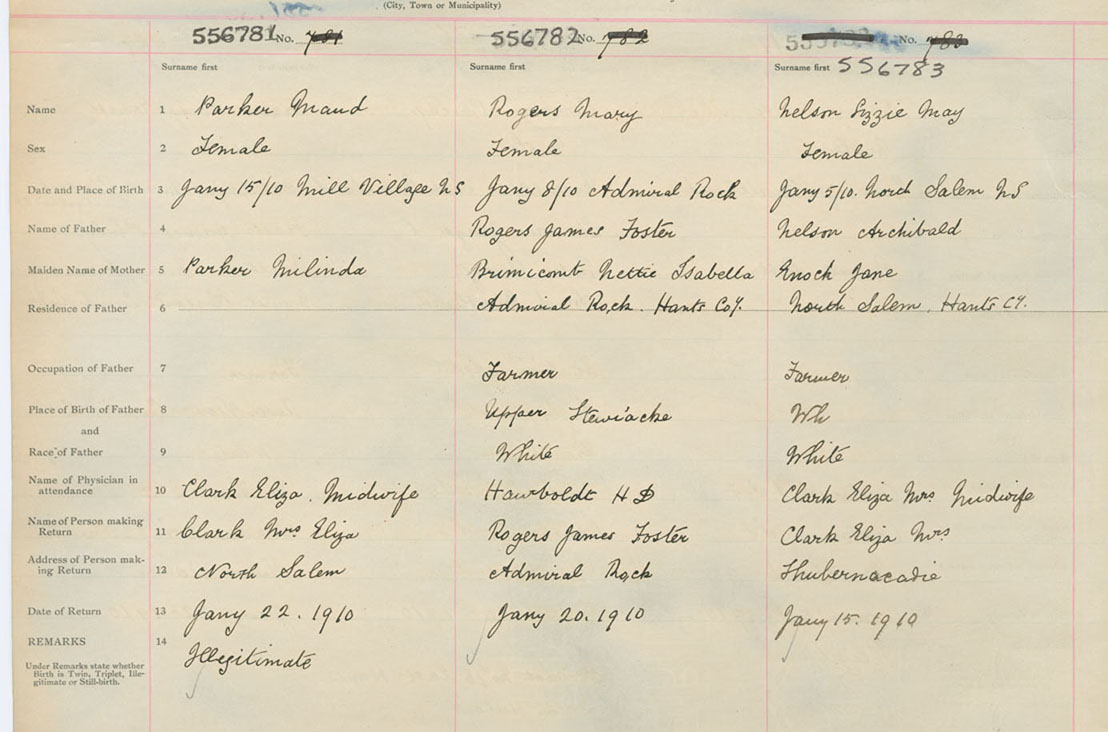 (City, Town or Municipality)
556781 No. 781 556782 No. 782 No. 783
Surname first Surname first Surname first 556783
Name 1 Parker Maud Rogers Mary Nelson Lizzie May
Sex 2 Female Female Female
Date and Place of Birth 3 Jany 15/10 Mill Village N S Jany 8/10 Admiral Rock Jany 5/10. North Salem N S
Name of Father 4 Rogers James Foster Nelson Archibald
Maiden Name of Mother 5 Parker Milinda Brimicomb Nettie Isabella Enock Jane
Residence of Father 6 Admiral Rock. Hants Coy. North Salem, Hants Cy.
Occupation of Father 7 Farmer Farmer
Place of Birth of Father 8 Upper Stewiacke Wh
and
Race of Father 9 White White
Name of Physician in
attendance 10 Clark Eliza, Midwife Hawboldt H D Clark Eliza Mrs Midwife
Name of Person making
Return 11 Clark Mrs Eliza Rogers James Foster Clark Eliza Mrs
Address of Person mak-
ing Return 12 North Salem Admiral Rock Shubernacadie
Date of Return 13 Jany 22. 1910 Jany 20. 1910 Jany 15. 1910
REMARKS 14
Illegitimate
Under Remarks state whether
Birth is Twin, Triplet, Ille-
gitimate or Still-birth.